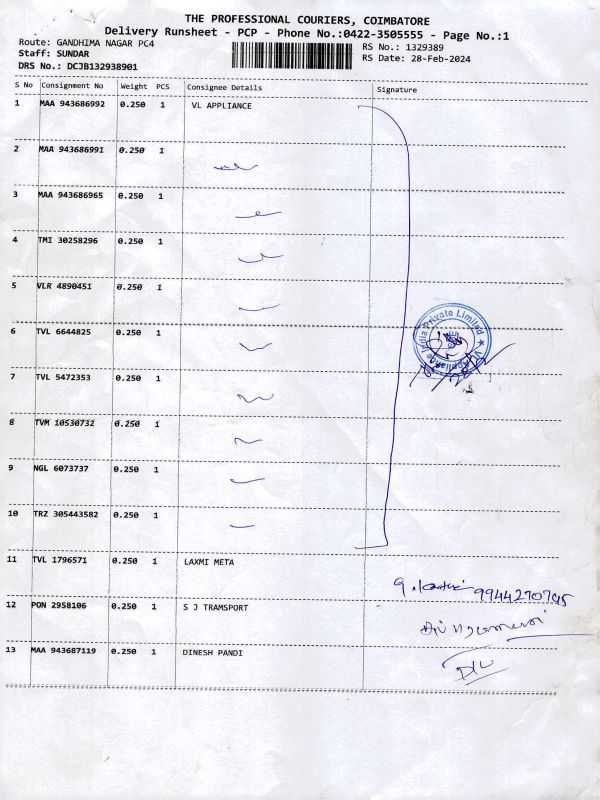 THE PROFESSIONAL COURIERS, COIMBATORE
Delivery Runsheet - PCP - Phone No.:0422-3505555 - Page No.:1
Route: GANDHIMA NAGAR PC4
RS No.: 1329389
Staff: SUNDAR
RS Date: 28-Feb-2024
DRS No.: DCJB132938901
S No Consignment No Weight PCS Consignee Details Signature
1 MAA 943686992 0.250 1 VL APPLIANCE
2 MAA 943686991 0.250 1
3 MAA 943686965 0.250 1
4 TMI 30258296 0.250 1
5 VLR 4890451 0.250 1
6 TVL 6644825 0.250 1
7 TVL 5472353 0.250 1
8 TVM 10530732 0.250 1
9 NGL 6073737 0.250 1
10 TRZ 305443582 0.250 1
India Private Limited
11 TVL 1796571 0.250 1 LAXMI META
9944270745
12 PON 2958106 0.250 1 S J TRAMSPORT
13 MAA 943687119 0.250 1 DINESH PANDI